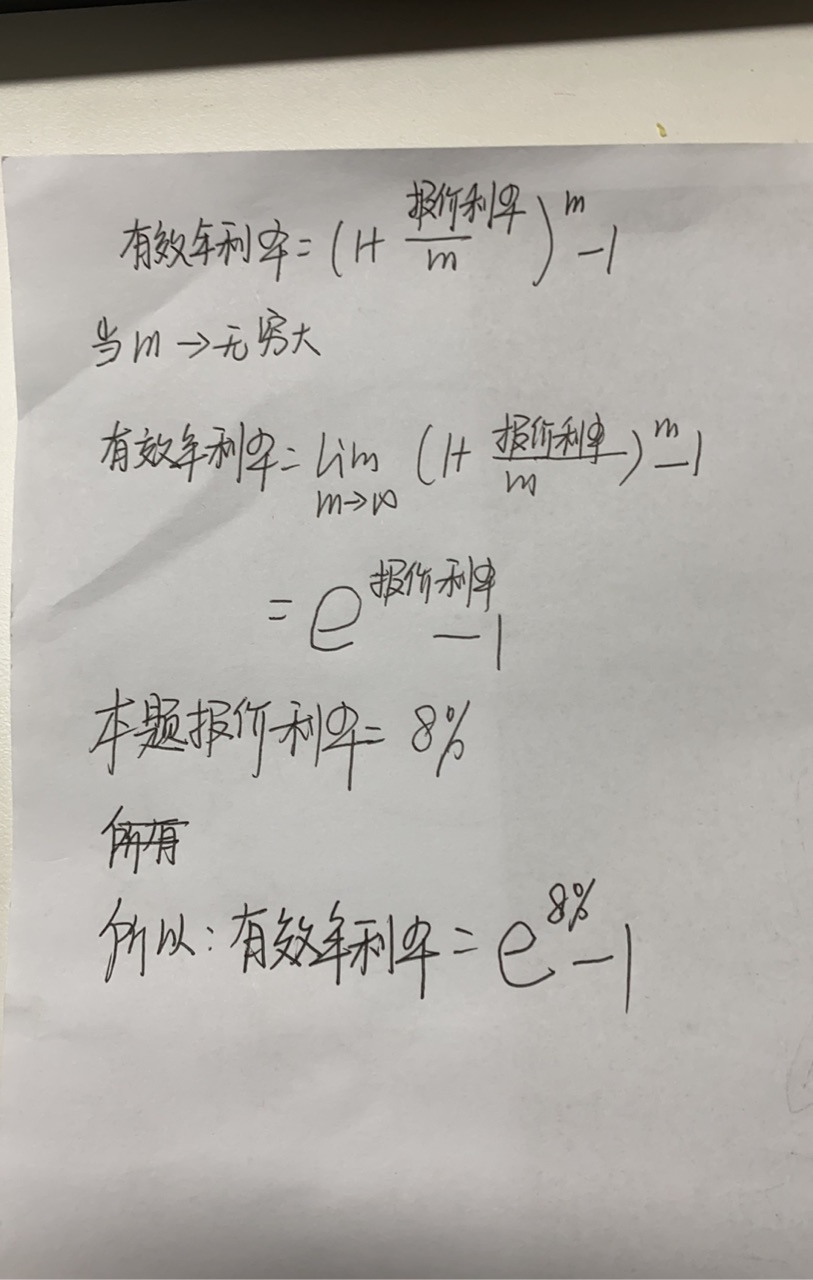 有效年利率=(1+报价利率/m)^m-1
当m→无穷大
有效年利率=lim m→∞ (1+报价利率/m)^m-1
=e^报价利率-1
本题报价利率=8%
所有
所以:有效年利率=e^8%-1